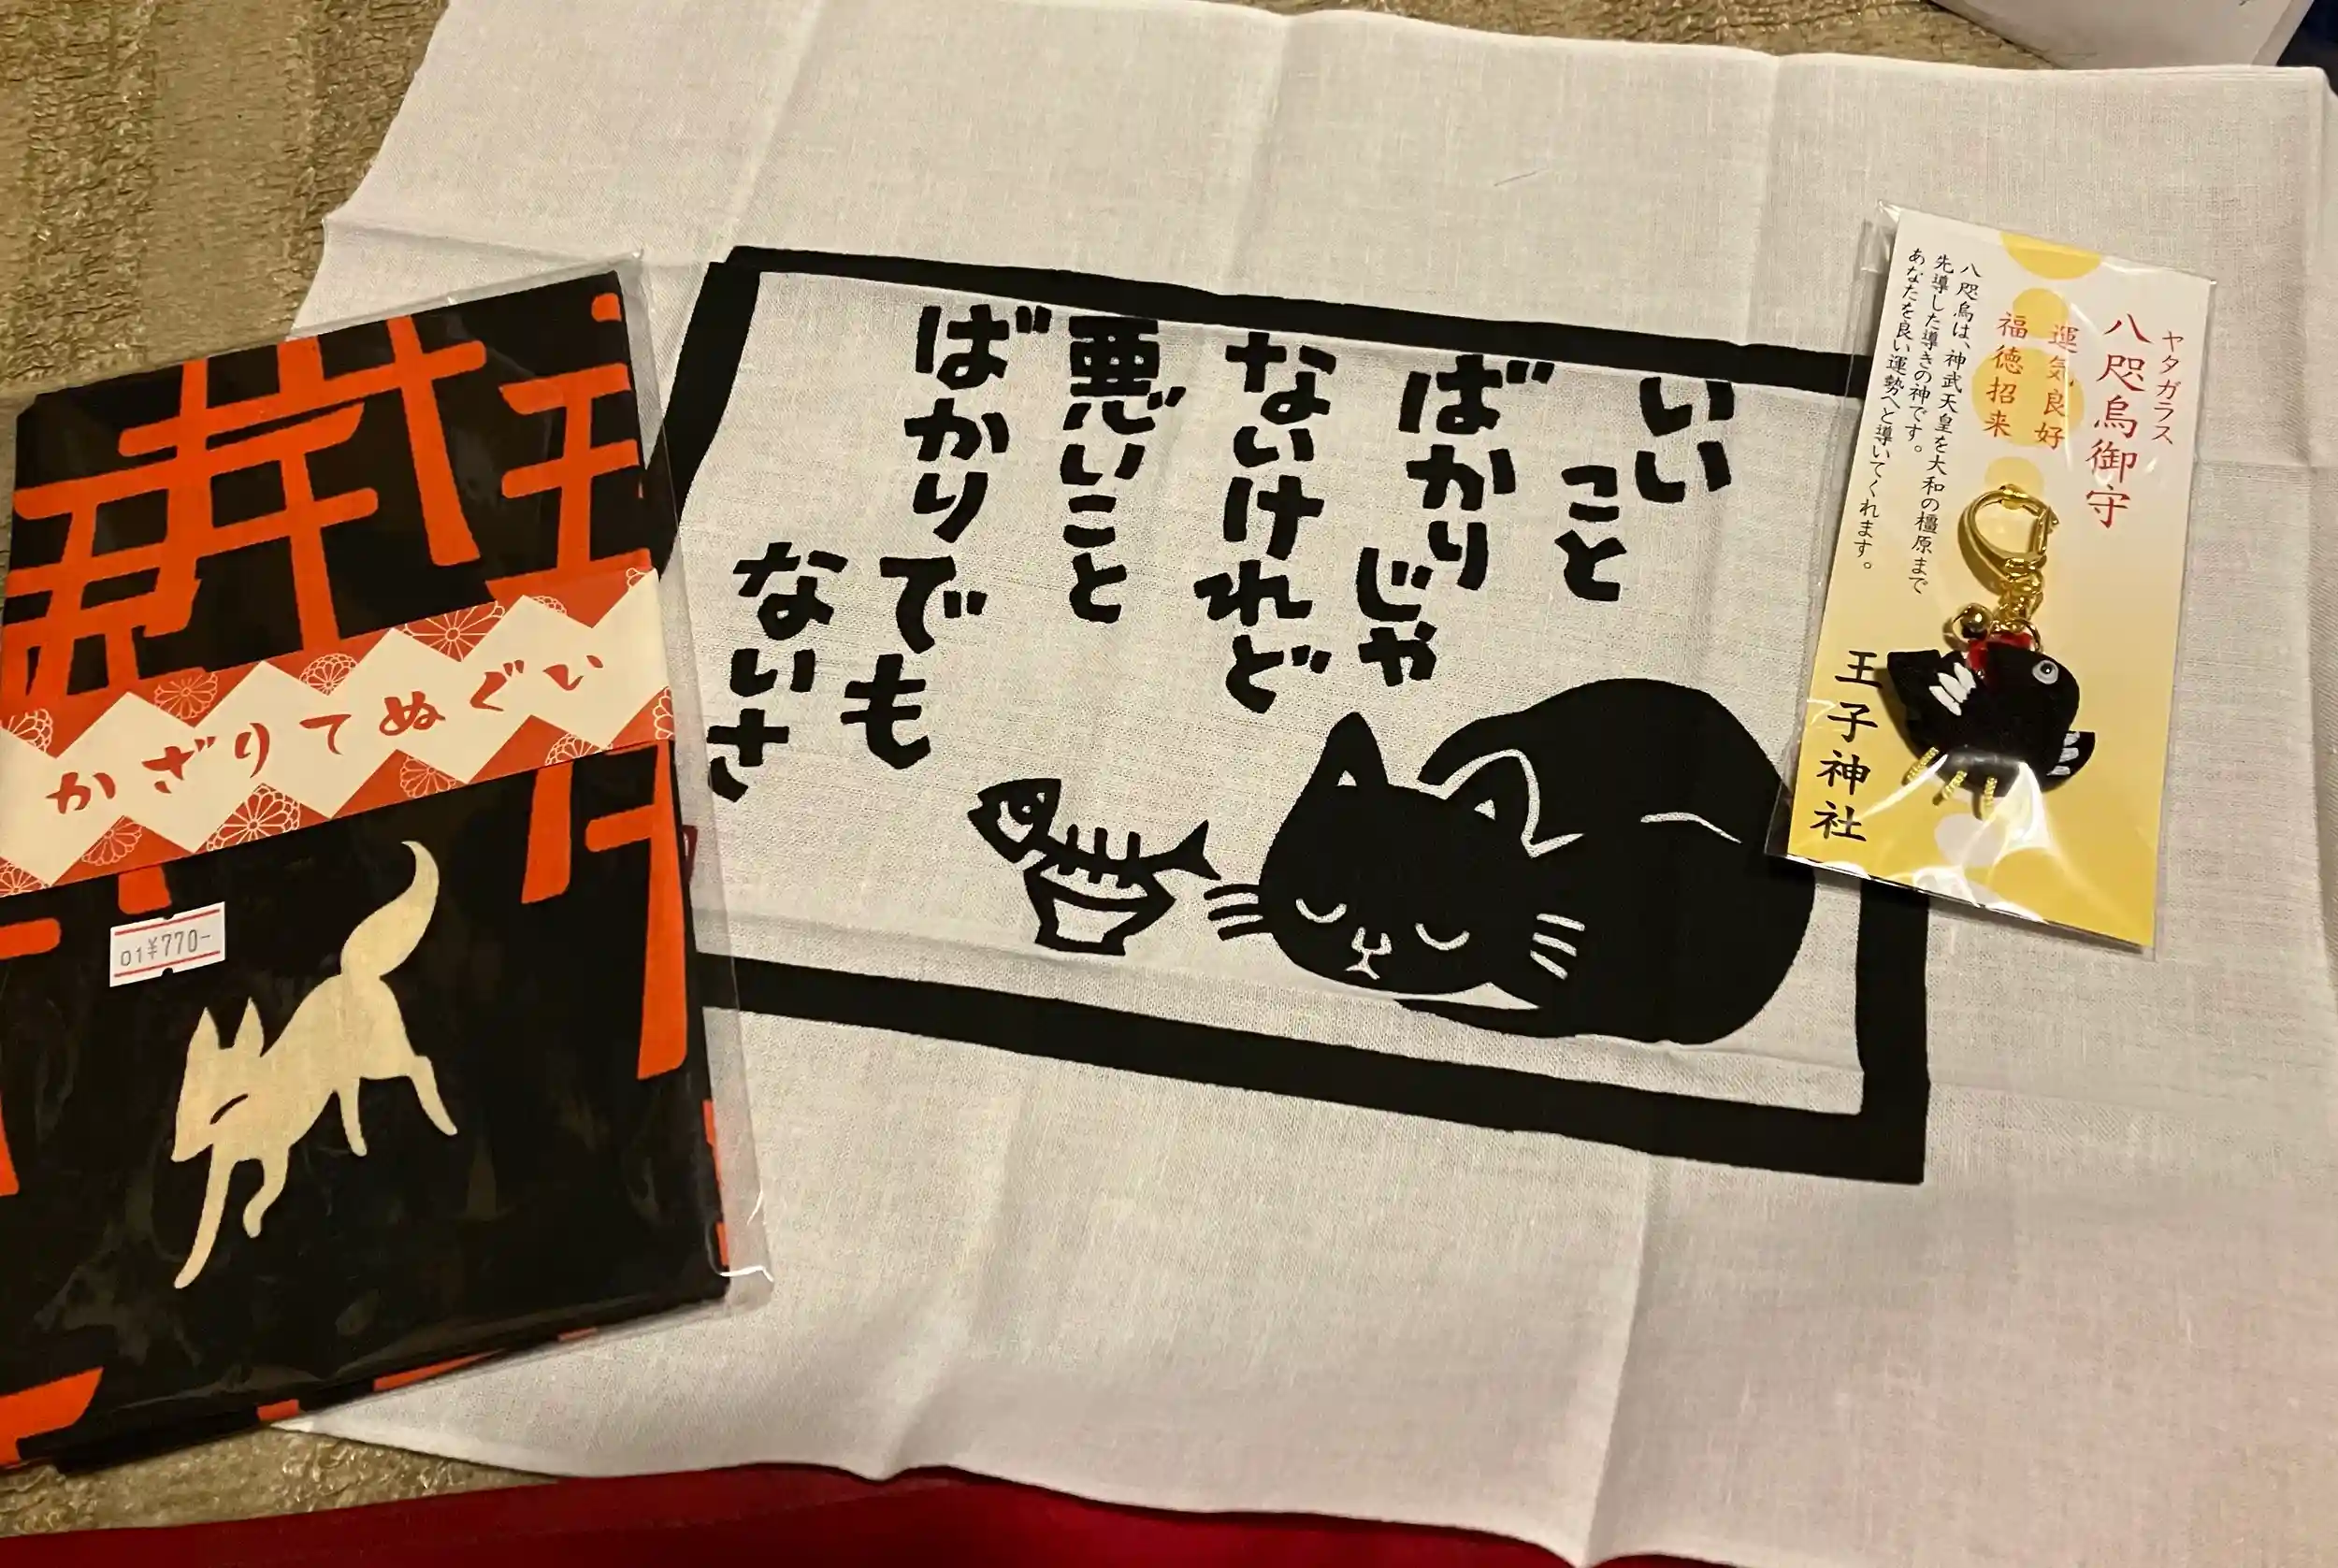 かざりてぬぐい
01¥770-
いい
こと
ばかり
じゃ
ないけれど
悪いこと
ばかり
でも
ないさ
ヤタガラス
八咫烏御守
運気良好
福徳招来
八咫烏は、神武天皇を大和の橿原まで
先導した導きの神です。
あなたを良い運勢へと導いてくれます。
王子神社